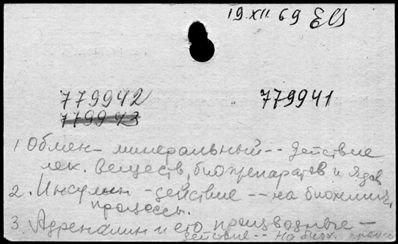 19.XII.69
779942 779941
779943
1 Обмен- минеральный -- действие
лек. веществ, биопрепаратов и ядов
2. Инсулин - действие -- на биохимич.
процессы.
3 Адреналин и его производные --
действие -- на биох.